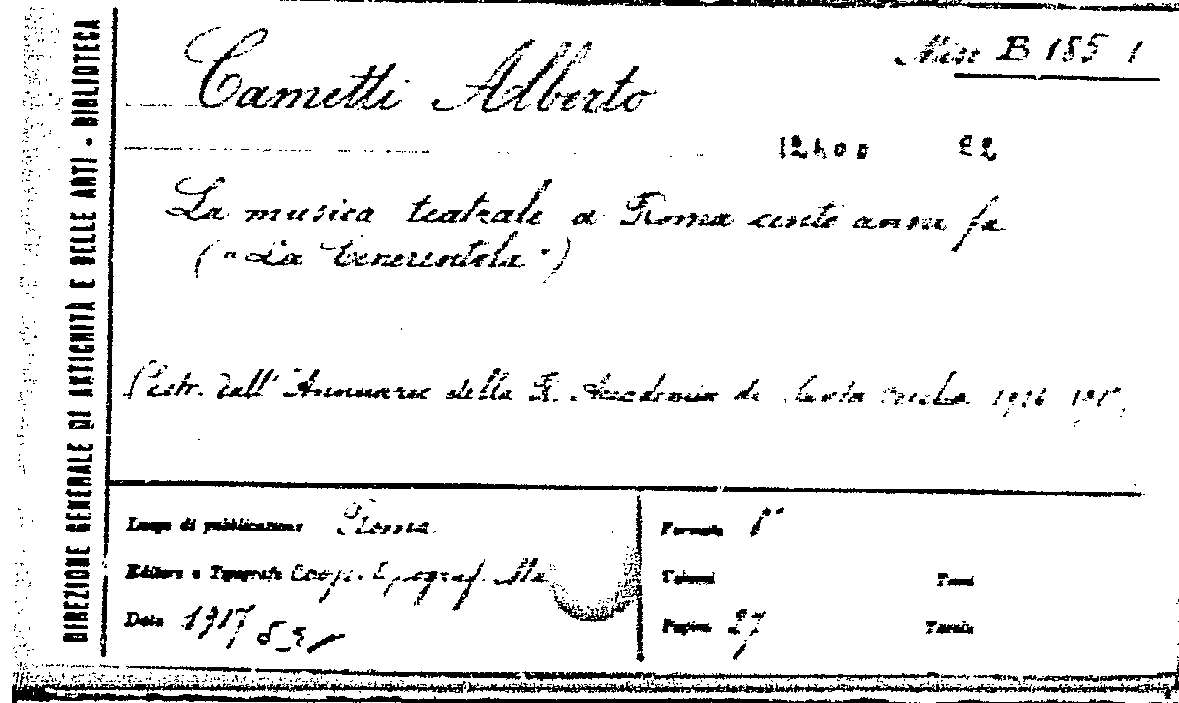 DIREZIONE GENERALE DI ANTICHITÀ E BELLE ARTI - BIBLIOTECA
Misc B 185 1
Cametti Alberto
12400 22
La musica teatrale a Roma cento anni fa
("La Cenerentola")
Estr. dall'Annuario della R. Accademia di Santa Cecilia 1916 1917
Luogo di pubblicazione Roma
Editore o Tipografo Coop. tipograf.
Data 1917
Formato 8°
Volumi Tomi
Pagine 27 Tavole